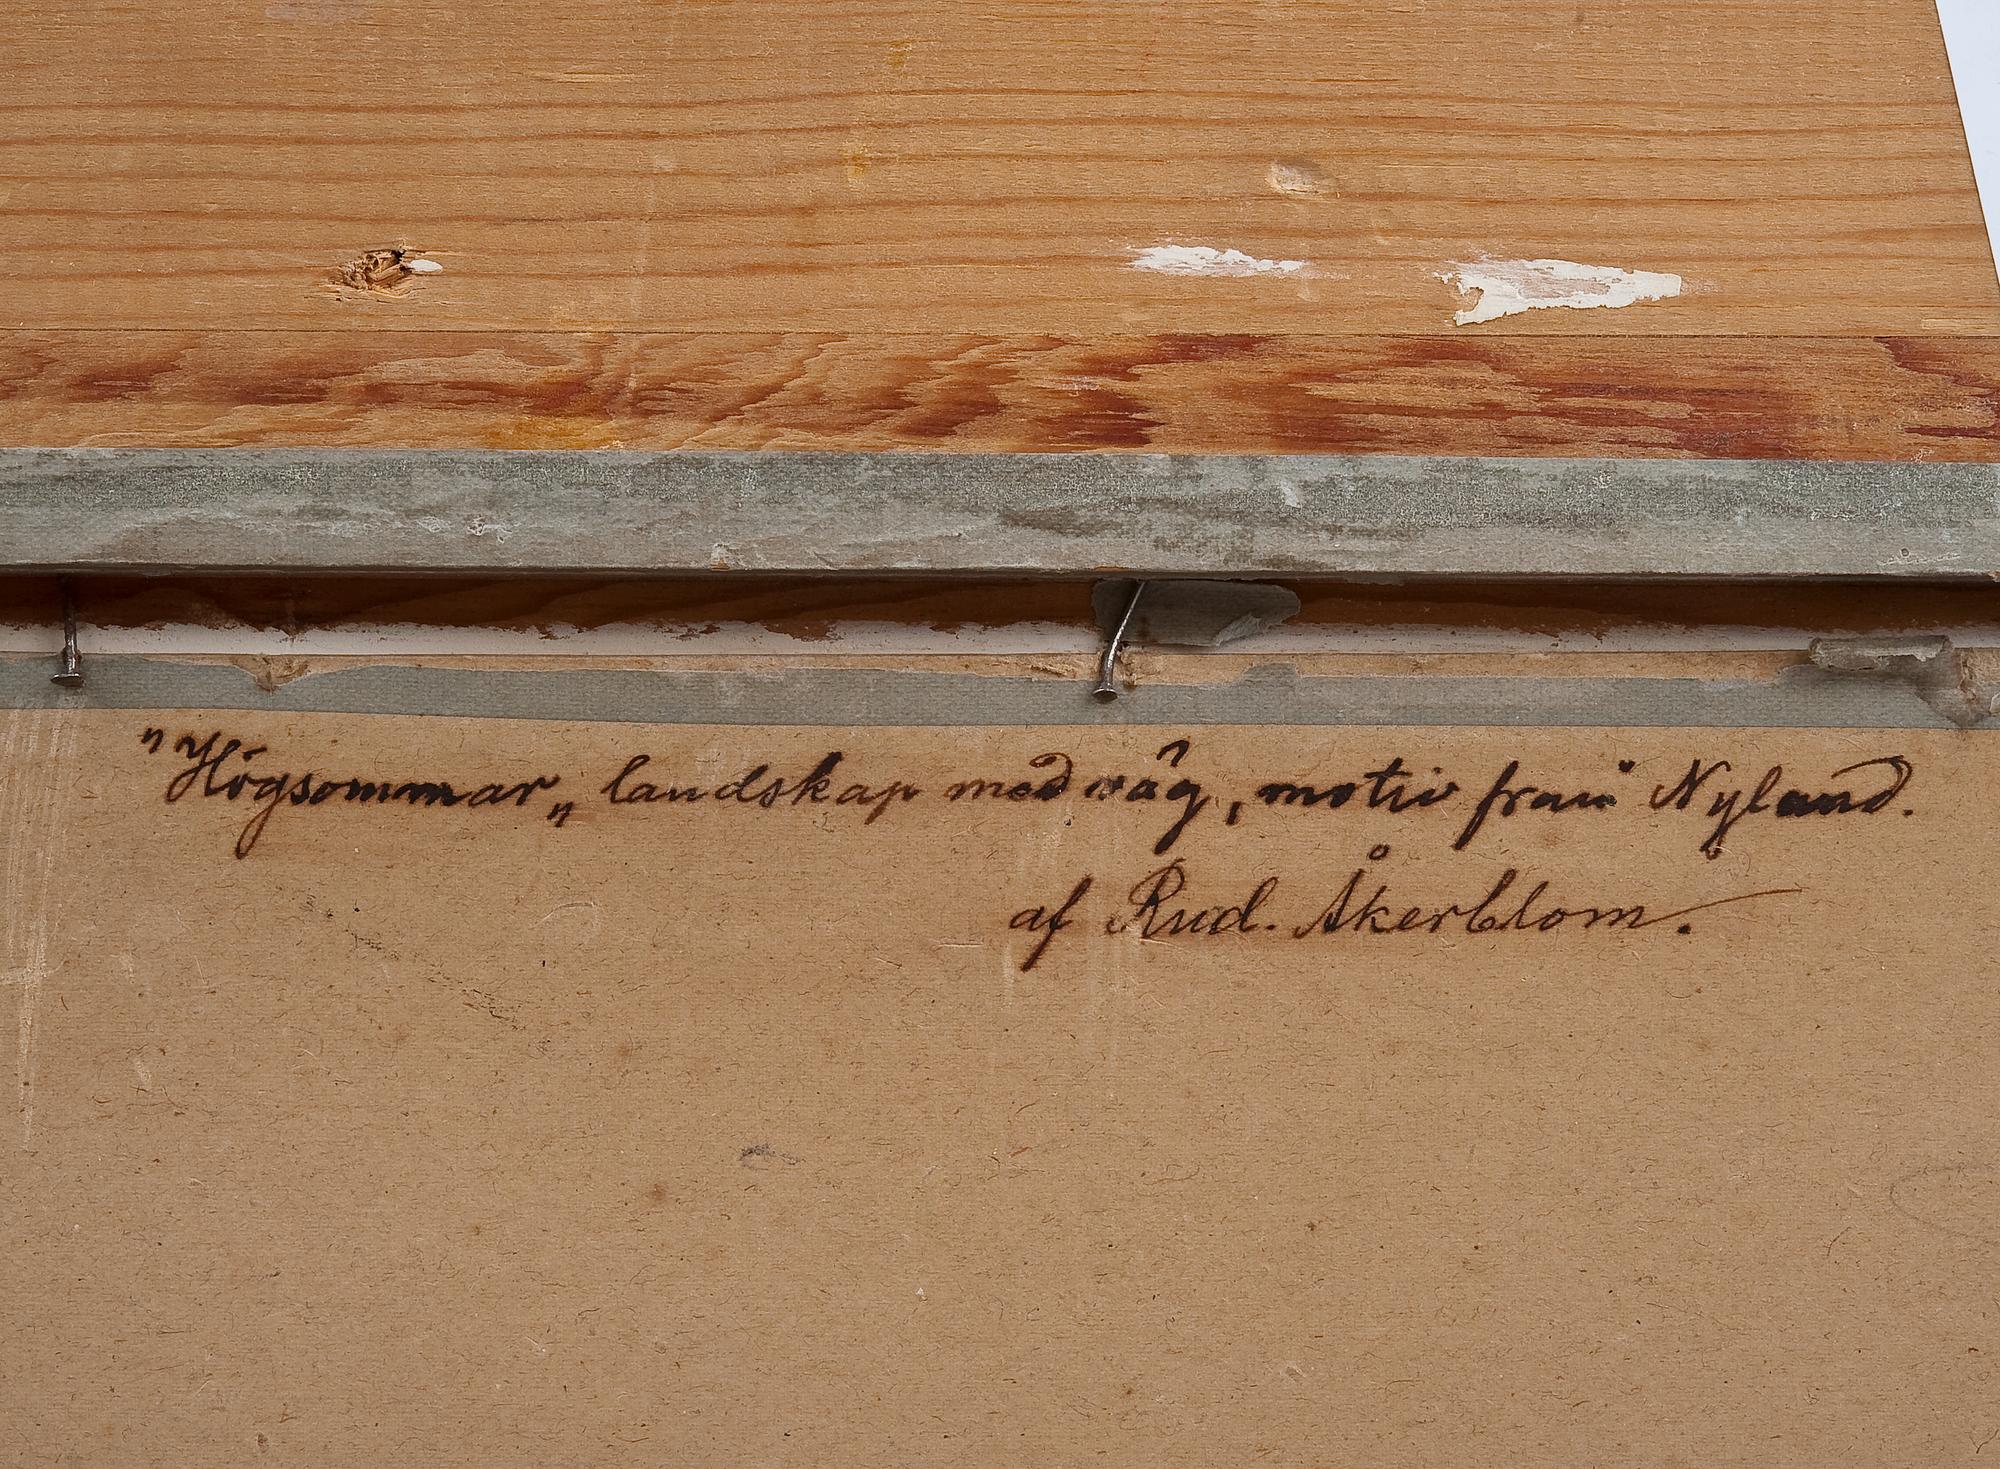 "Högsommar„ landskap med väg, motiv från Nyland.
af Rud. Åkerblom.